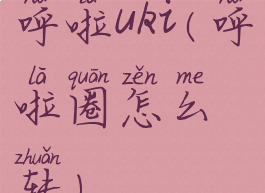 呼啦uki(呼
lā quān zěn me
啦圈怎么
zhuǎn
转)